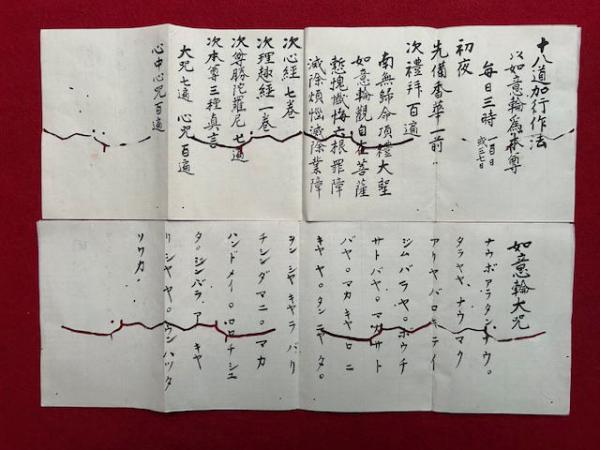 十八道加行作法
以如意輪爲本尊
毎日三時 一百日
或三七日
初夜
先備香華一前
次禮拜百遍
南無歸命頂禮大聖
如意輪觀自在菩薩
慙愧懺悔六根罪障
滅除煩惱滅除業障
次心經七卷
次理趣經一卷
次尊勝陀羅尼七遍
次本尊三種真言
大咒七遍 心咒百遍
心中心咒百遍
如意輪大咒
ナウボアラタンナウ。
タラヤヤ、ナウマク
アリヤバロキテイ
ジムバラヤ。ボウチ
サトバヤ。マカサト
バヤ。マカキャロニ
キャヤ。タニャタ。
ヲンシャキャラバリ
チシンダマニ。マカ
ハンドメイ。ロロチシユ
タ。ジンバラアキャ
リシャヤ。ウンハッタ
ソワカ。